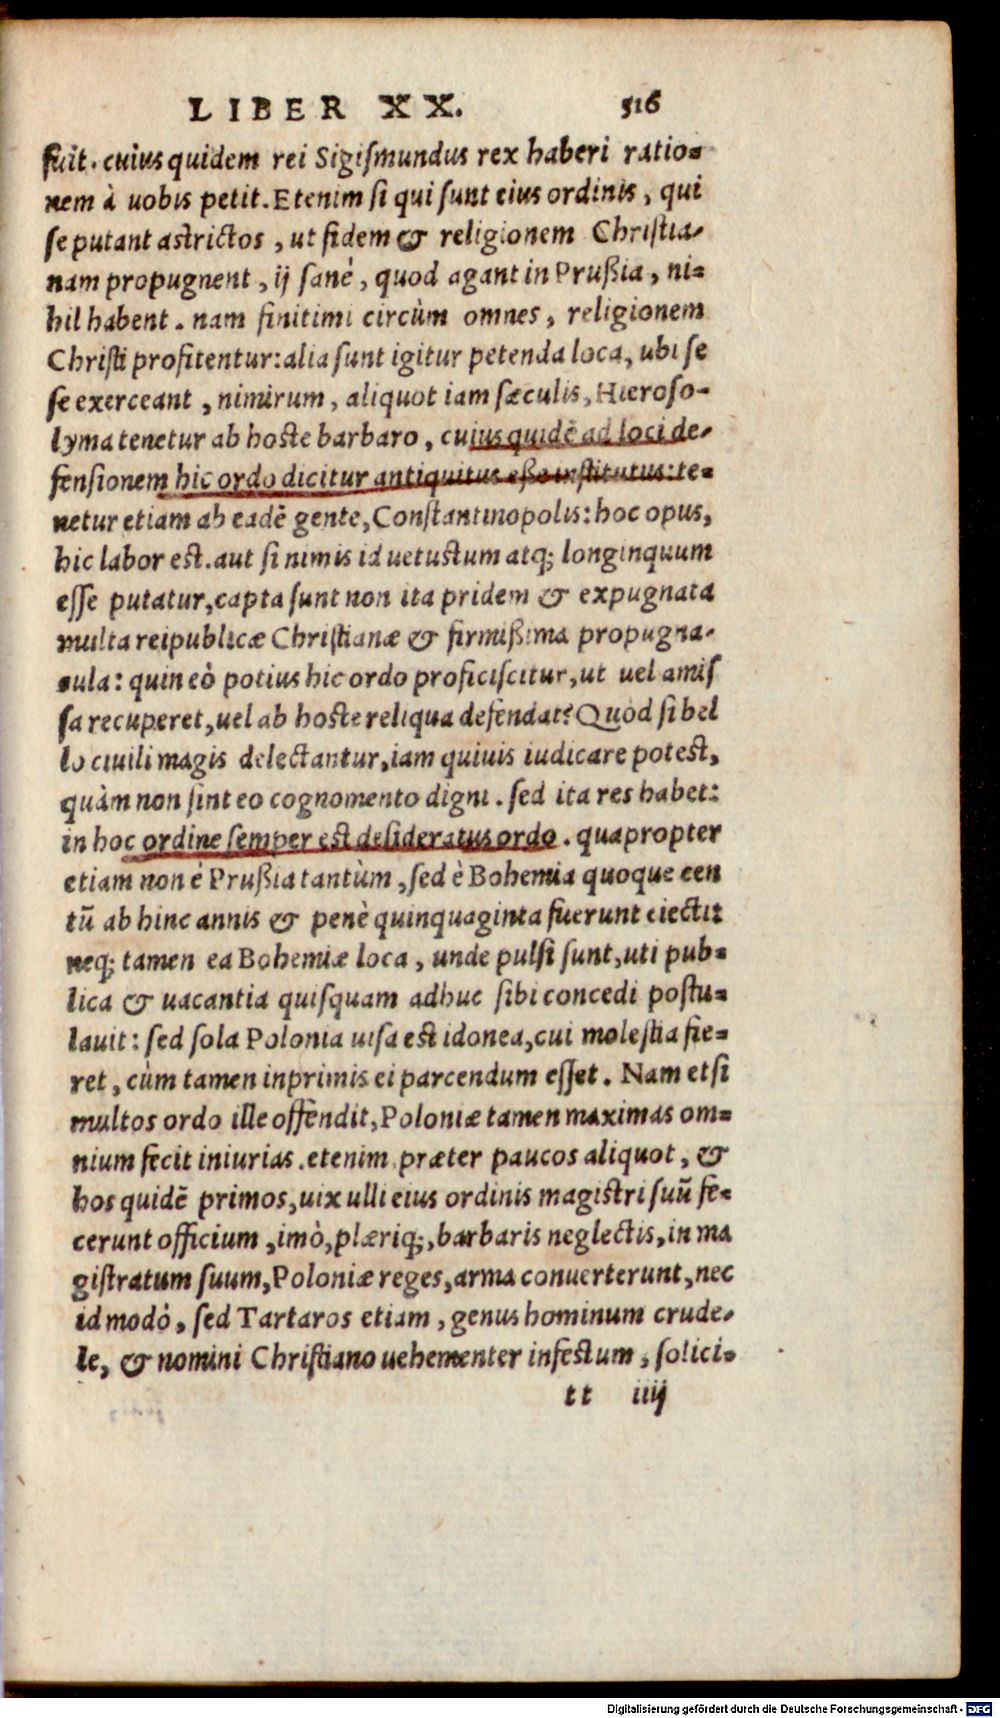 LIBER XX. 516
fuit. cuius quidem rei Sigiſmundus rex haberi ratio=
nem à uobis petit. Etenim ſi qui ſunt eius ordinis, qui
ſe putant astrictos, ut fidem & religionem Chriſtia-
nam propugnent, ij ſanè, quod agant in Prußia, ni=
hil habent. nam finitimi circùm omnes, religionem
Chriſti profitentur: alia ſunt igitur petenda loca, ubi ſe
ſe exerceant, nimirum, aliquot iam ſæculis, Hieroſo-
lyma tenetur ab hoste barbaro, cuius quidē ad loci de-
fenſionem hic ordo dicitur antiquitus eße inſtitutus: te=
netur etiam ab eadē gente, Conſtantinopolis: hoc opus,
hic labor est. aut ſi nimis id uetustum atq; longinquum
eſſe putatur, capta ſunt non ita pridem & expugnata
multa reipublicæ Chriſtianæ & firmißima propugna-
cula: quin eò potius hic ordo proficiſcitur, ut uel amiſ
ſa recuperet, uel ab hoste reliqua defendat? Quòd ſi bel
lo ciuili magis delectantur, iam quiuis iudicare potest,
quàm non ſint eo cognomento digni. ſed ita res habet:
in hoc ordine ſemper est deſideratus ordo. quapropter
etiam non è Prußia tantùm, ſed è Bohemia quoque cen
tū ab hinc annis & penè quinquaginta fuerunt eiecti:
neq; tamen ea Bohemiæ loca, unde pulſi ſunt, uti pub=
lica & uacantia quiſquam adhuc ſibi concedi poſtu=
lauit: ſed ſola Polonia uiſa est idonea, cui moleſtia fie=
ret, cùm tamen inprimis ei parcendum eſſet. Nam etſi
multos ordo ille offendit, Poloniæ tamen maximas om=
nium fecit iniurias. etenim præter paucos aliquot, &
hos quidē primos, uix ulli eius ordinis magiſtri ſuū fe=
cerunt officium, imò, plæriq;, barbaris neglectis, in ma
giſtratum ſuum, Poloniæ reges, arma conuerterunt, nec
id modò, ſed Tartaros etiam, genus hominum crude-
le, & nomini Chriſtiano uehementer infectum, ſolici=
tt iiij
Digitalisierung gefördert durch die Deutsche Forschungsgemeinschaft - DFG